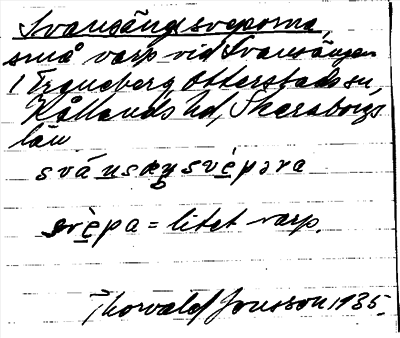 Svanängsveporna,
små varp vid Svanängen
i Traneberg Otterstads sn,
Kållands hd, Skaraborgs
län
svánsæŋsvèpəra
svèpa = litet varp.
Thorvald Jonsson 1935.